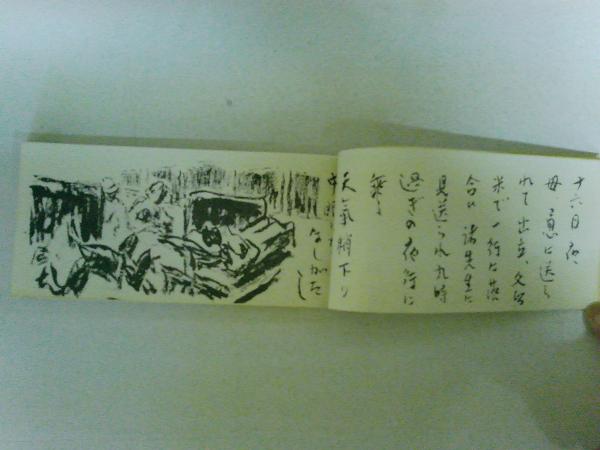 十六日夜、
母 に送ら
れて出立、久留
米で一行に落
合ひ 諸先生に
見送られ九時
過ぎの夜行に
乗る
天氣稍下り
なしがたし